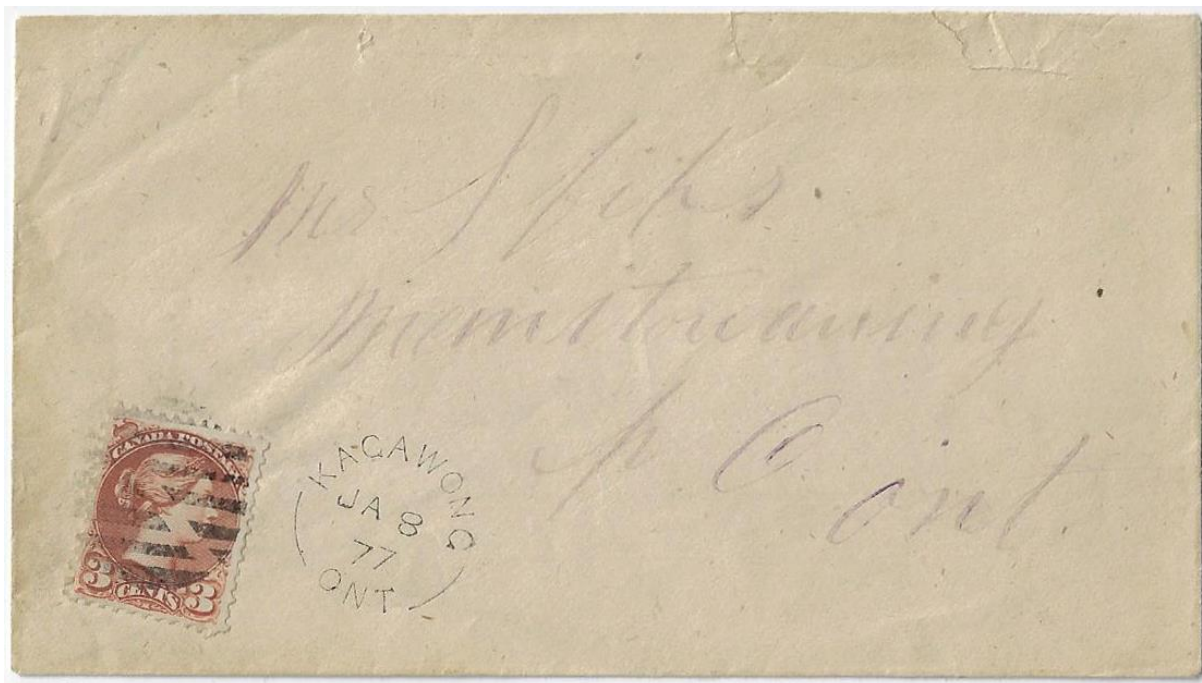 Mr S
Manitowaning
P O
Ont.
CANADA POSTAGE
3 CENTS 3
KAGAWONG
JA 8
77
ONT